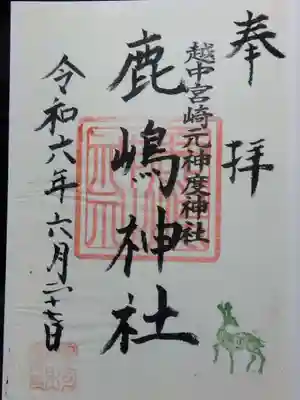 奉拝
越中宮崎元神度神社
鹿嶋神社
令和六年六月二十七日